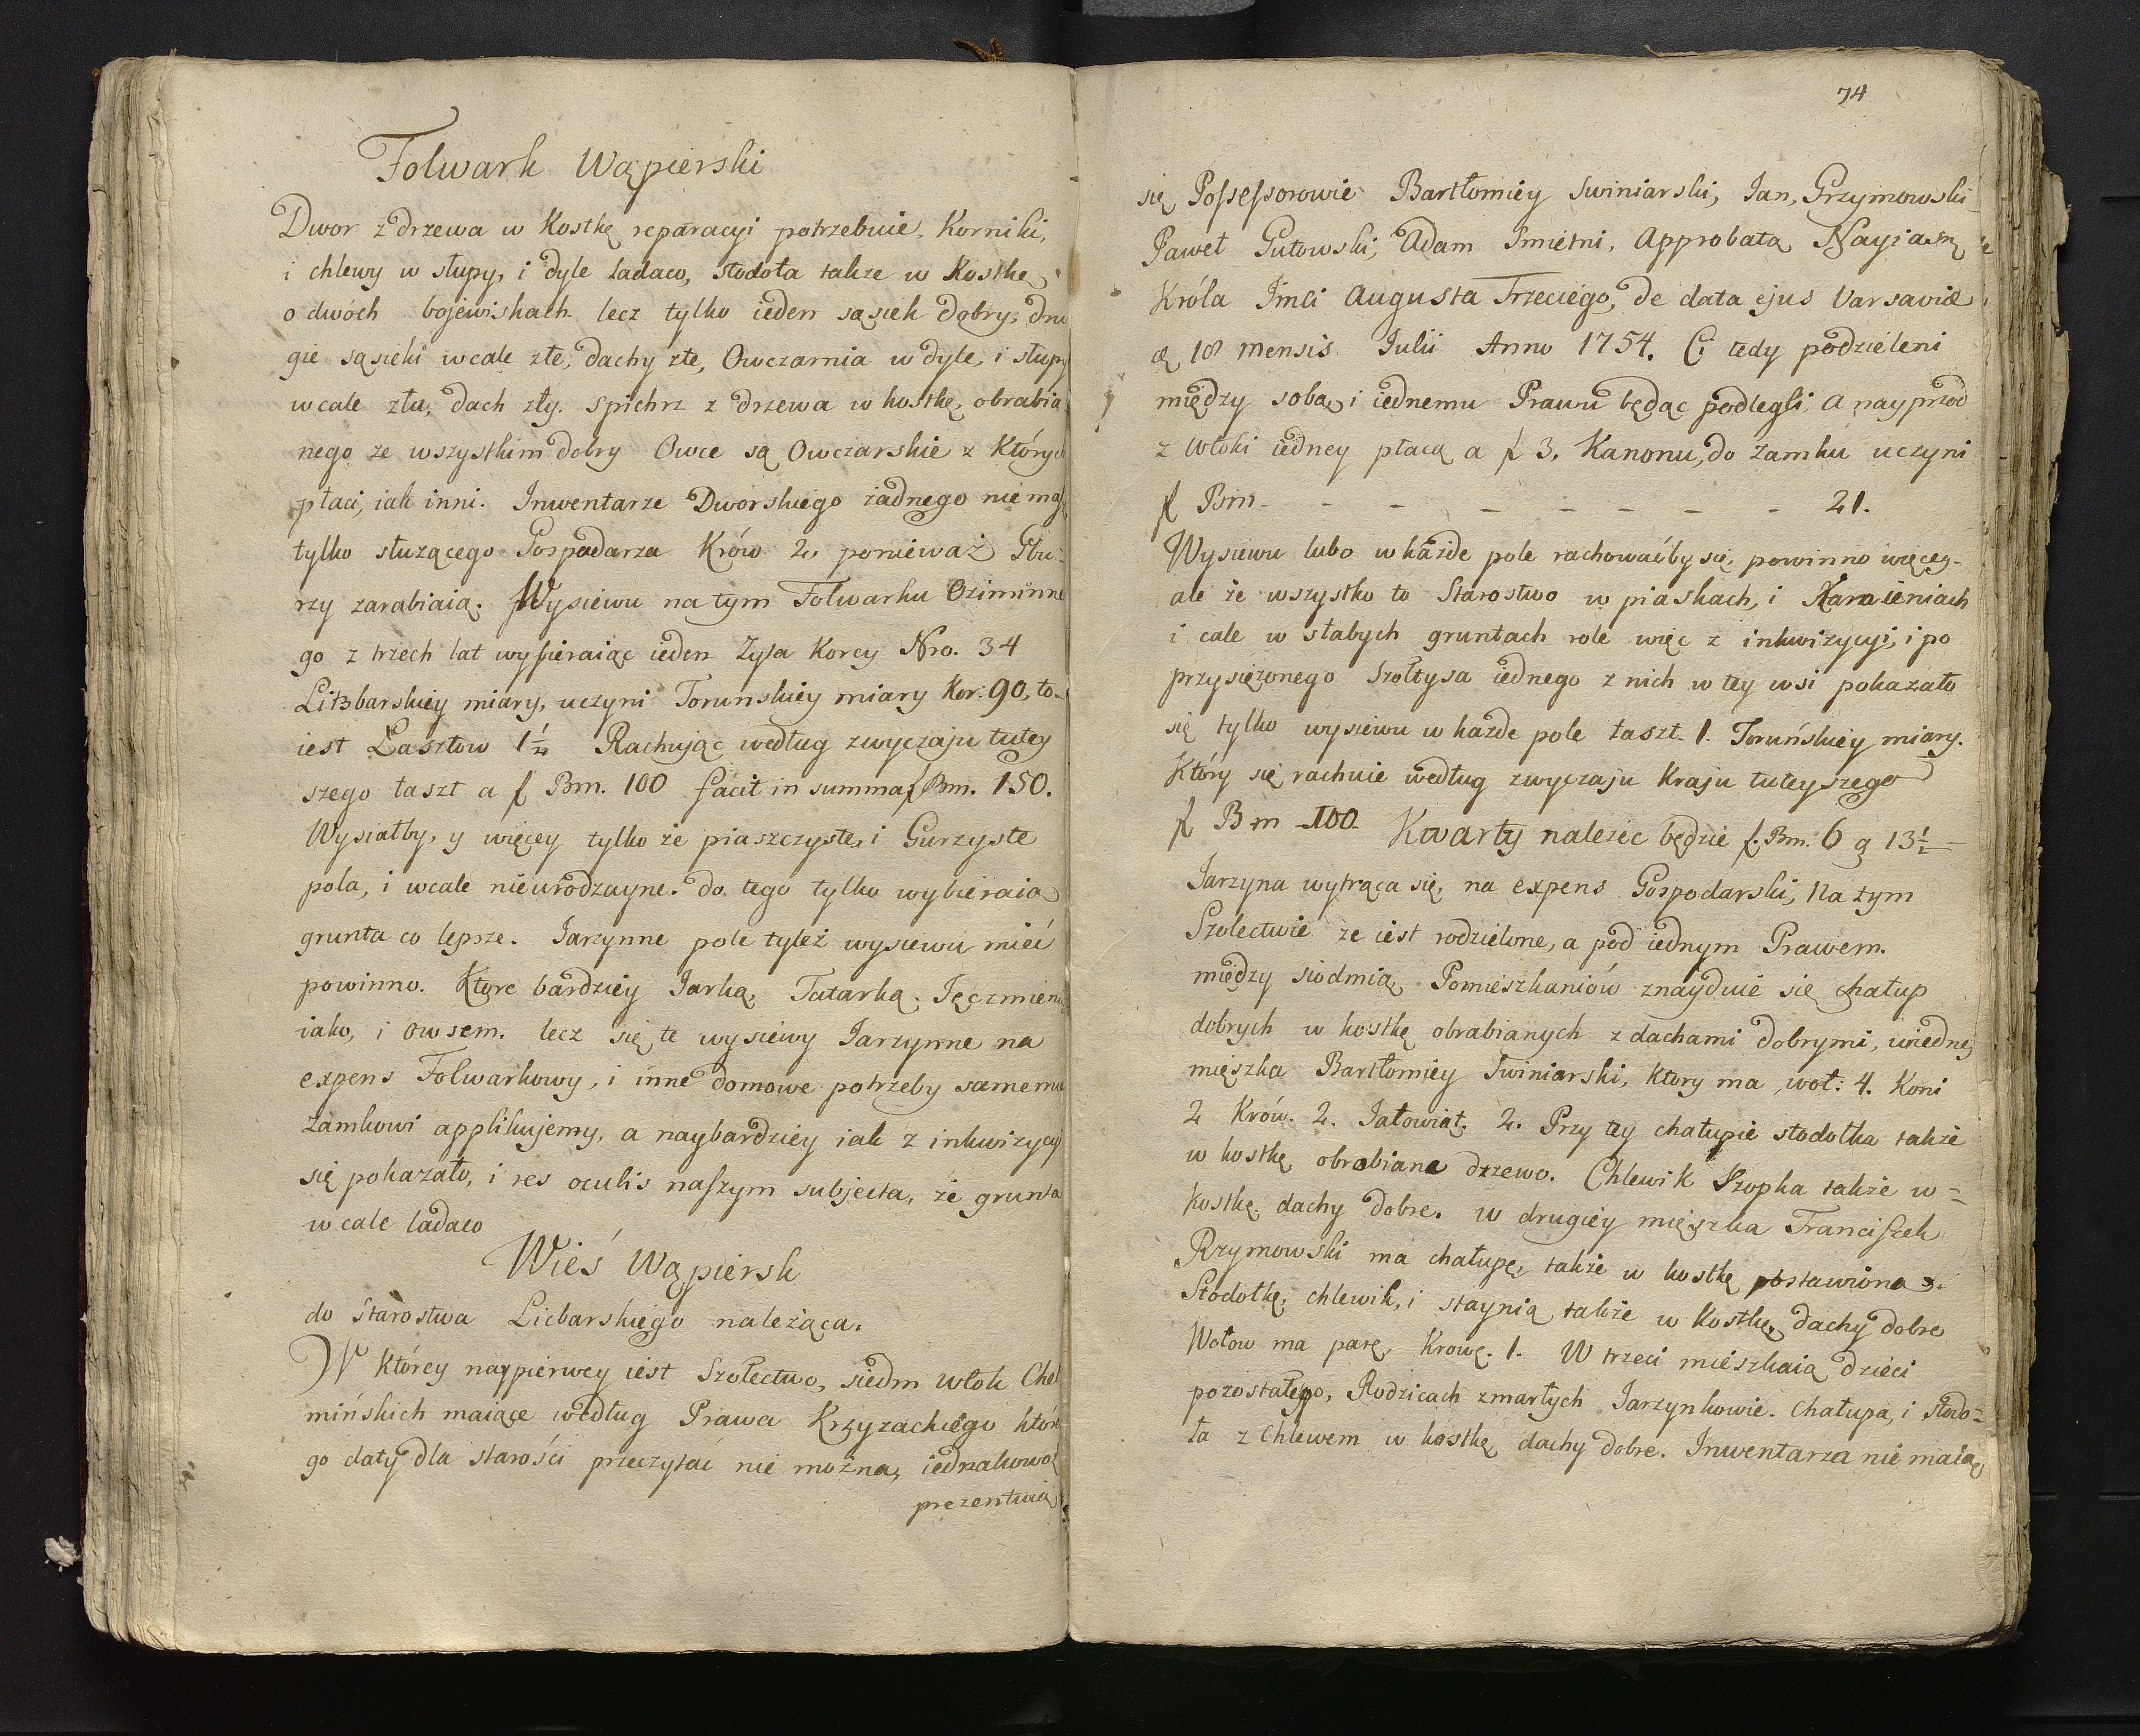 Folwark Wąpierski
Dwor z drzewa w Kostkę reparacyi potrzebuie. Korniki,
i chlewy w słupy, i dyle ladaco, stodoła także w Kostkę
o dwóch bojewiskach lecz tylko ieden sąsiek dobry, dru
gie sąsieki wcale złe, dachy złe, Owczarnia w dyle, i słupy
wcale zła, dach zły. Spichrz z drzewa w kostkę, obrabia
nego ze wszystkim dobry Owce są Owczarskie z Których
płaci, iak inni. Inwentarze Dworskiego żadnego nie masz
tylko służącego Gospodarza Krów 2. ponieważ Gbu-
rzy zarabiaią. Wysiewu na tym Folwarku Oziminne
go z trzech lat wybieraiąc ieden Żyta Korcy Nro. 34
Litzbarskiey miary, uczyni Torunskiey miary Kor: 90, to-
iest Łasztow 1½ Rachując według zwyczaju tutey
szego łaszt a f Bm. 100 facit in summa f Bm. 150.
Wysiałby, y więcey tylko że piaszczyste, i Gurzyste
pola, i wcale nieurodzayne. do tego tylko wybieraią
grunta co lepsze. Jarzynne pole tyleż wysiewu mieć
powinno. Ktore bardziey Jarką, Tatarką. Jęczmienie
iako, i owsem. lecz się te wysiewy Jarzynne na
expens Folwarkowy, i inne domowe potrzeby samemu
Zamkowi applikujemy, a naybardziey iak z inkwizycyi
się pokazało, i res oculis naszym subjecta, że grunta
wcale ladaco
Wieś Wąpiersk
do Starostwa Licbarskiego należąca.
W Którey naypierwey iest Szołectwo, siedm włok Cheł
mińskich maiące według Prawa Krzyzackiego które
go daty dla starości przeczytać nie można, iednakowoż
prezentuią
74
się Possessorowie Bartłomiey Swiniarski, Jan, Grzymowski
Paweł Gutowski, Adam Smietni, Approbatą Nayiasn
Króla Jmci Augusta Trzeciego, de data ejus Varsaviæ
18 mensis Julii Anno 1754. Ci tedy podzieleni
między sobą, i iednemu Prawu będąc podlegli, a nayprzod
z włoki iedney płacą a f 3, Kanonu, do Zamku uczyni
f Bm - - - - - - - - 21.
Wysiewu lubo w każde pole rachowaćby się, powinno więcey-
ale że wszystko to Starostwo w piaskach, i Kamieniach
i cale w słabych gruntach role więc z inkwizycyi, i po
przysiężonego Szołtysa iednego z nich w tey wsi pokazało
się tylko wysiewu w każde pole łaszt. 1. Toruńskiey miary.
Który się rachuie według zwyczaju Kraju tuteyszego
f Bm 100 Kwarty należec będzie f. Bm. 6 g 13½
Jarzyna wytrąca się, na expens Gospodarski, Na tym
Szolectwie że iest rodzielone, a pod iednym Prawem.
między siodmią Pomieszkaniów znayduie się chałup
dobrych w kostkę obrabianych z dachami dobrymi, w iedney
mięszka Bartłomiey Swiniarski, ktory ma woł: 4. Koni
2 Krów. 2. Jałowiąt. 2. Przy tey chałupie stodołka także
w kostkę obrabiane drzewo. Chlewik Szopka także w-
Kostkę. dachy dobre. w drugiey mięszka Franciszek
Rzymowski ma chałupę, także w kostkę postawioną.
Stodołkę, chlewik, i staynią także w Kostkę, dachy dobre
Wołow ma parę, Krowę. 1. W trzeci mieszkaią dzieci
pozostałego, Rodzicach zmarłych Jarzynkowie. chałupa, i stodo-
ła z chlewem w kostkę dachy dobre. Inwentarza nie maią